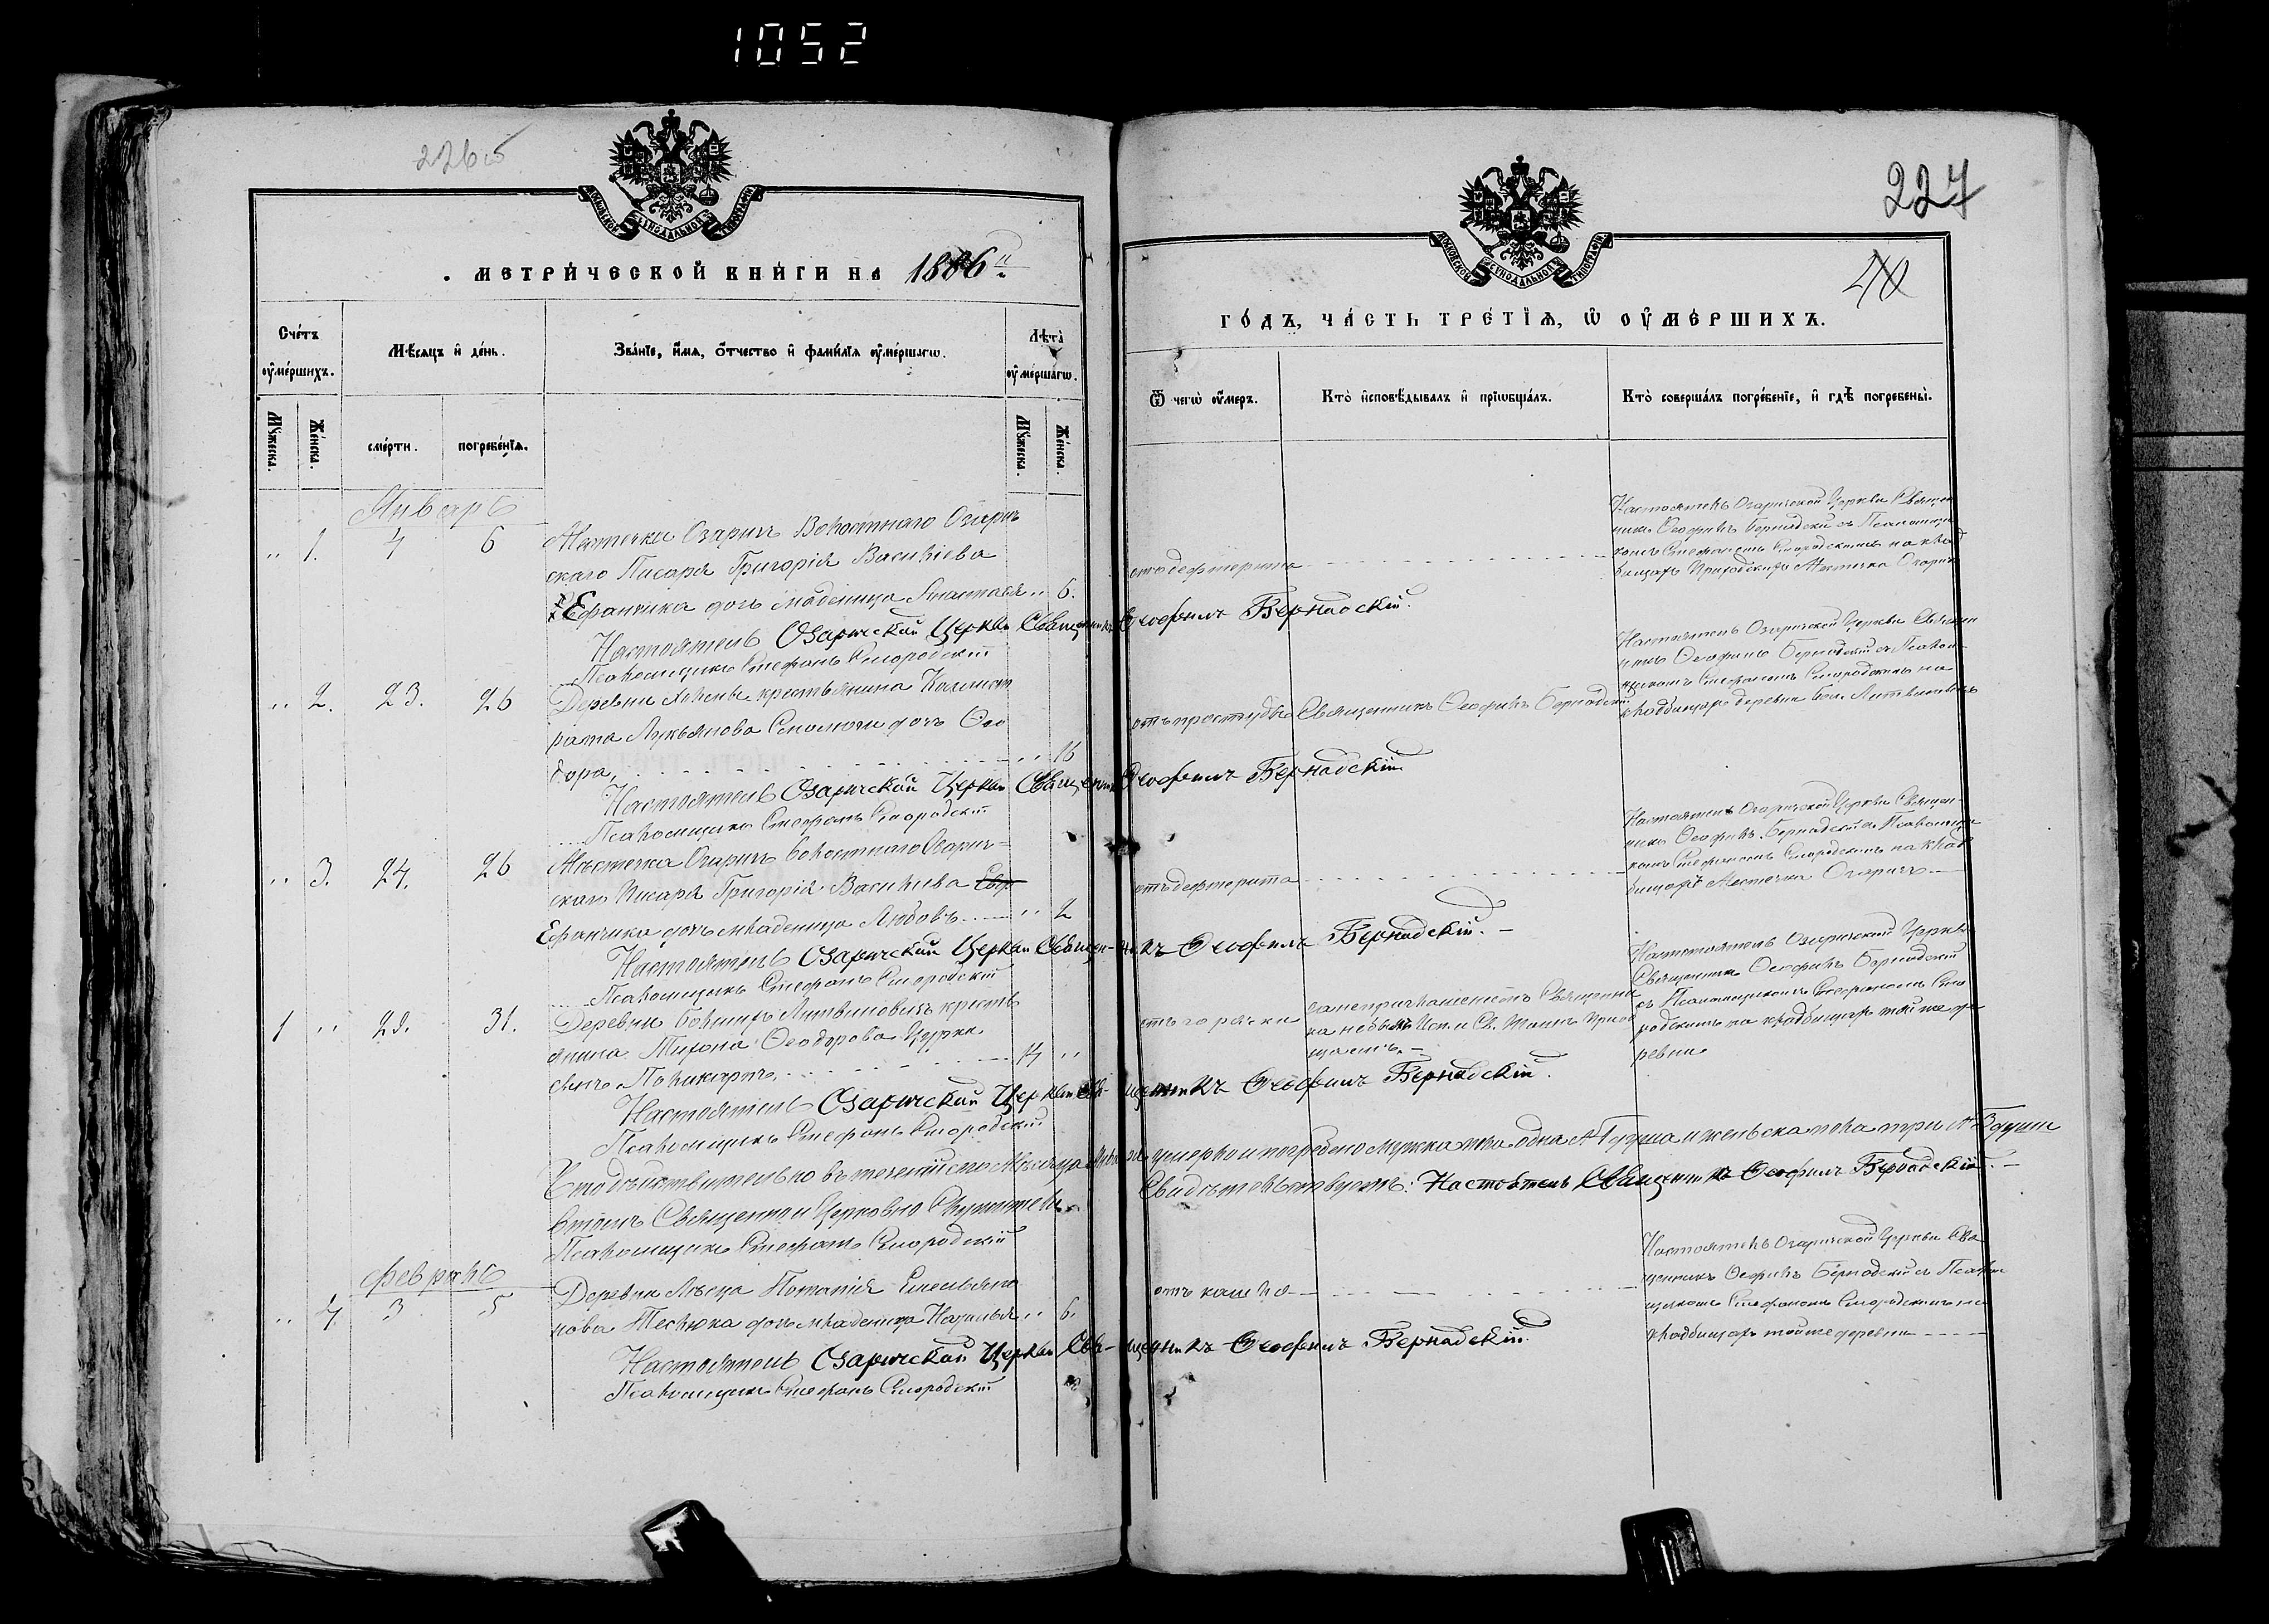 1052
226об
МОСКОВСКОЙ СУНОДАЛЬНОЙ ТИПОГРАФІИ
МЕТРИЧЕСКОЙ КНИГИ НА 1886й
Счетъ оумершихъ.
Мѣсяцъ и день.
Званіе, имя, отчество и фамилія оумершагω.
Лѣта оумершагω.
Мужеска.
Женска.
смерти.
погребенія.
Мужеска.
Женска.
Январь
" 1. 4 6 Мѣстечка Озаричъ Волостнаго Озарич
скаго Писаря Григорія Василіева
Ефанчика дочь младеница Анастасія " 6.
Настоятель Озаричской Церкви Священникъ Ѳеофилъ Бернадскій.
Псаломщикъ Стефанъ Смородскій
" 2. 23. 26 Деревни крестьянина Калист
рата Лукьянова дочь Ѳео
дора, " 16
Настоятель Озаричской Церкви Священникъ Ѳеофилъ Бернадскій
Псаломщикъ Стефанъ Смородскій
" 3. 24. 26 Мѣстечка Озаричъ волостнаго Озарич=
скаго Писаря Григорія Василіева
Ефанчика дочь младеница Любовь " 2
Настоятель Озаричской Церкви Священникъ Ѳеофилъ Бернадскій.
Псаломщикъ Стефанъ Смородскій
1 " 29. 31. Деревни Литвиновичъ кресть
янина Тихона Ѳеодорова Цурка
сынъ Поликарпъ, "
Настоятель Озаричской Церкви Священникъ Ѳеофилъ Бернадскій.
Псаломщикъ Стефанъ Смородскій
Что дѣйствительно въ теченіи сего Мѣсяца Января умерло и погребено мужска пола одна №1 душа и женска пола три №3 души
въ томъ Священно и Церковно Служители Свидѣтельствуемъ: Настоятель Священникъ Ѳеофилъ Бернадскій.
Псаломщикъ Стефанъ Смородскій
Февраль
" 4. 3 5 Деревни Лѣсца Потапія Емельяно
нова дочь младеница Наталья " 6.
Настоятель Озаричской Церкви Священникъ Ѳеофилъ Бернадскій.
Псаломщикъ Стефанъ Смородскій
227
МОСКОВСКОЙ СУНОДАЛЬНОЙ ТИПОГРАФІИ
ГОДЪ, ЧАСТЬ ТРЕТІЯ, Ѡ ОУМЕРШИХЪ.
Ѿ чегω оумеръ.
Кто исповѣдывалъ и пріωбщалъ.
Кто совершалъ погребеніе, и гдѣ погребены.
отъ дефтерита
Настоятель Озаричской Церкви Священ
никъ Ѳеофилъ Бернадскій съ Псаломщи
комъ Стефаномъ Смородскимъ на клад
бищѣ Приходскомъ Мѣстечка Озаричъ
отъ простуды Священникъ Ѳеофилъ Бернадскій
Настоятель Озаричской Церкви Священ
никъ Ѳеофилъ Бернадскій съ Псалом
щикомъ Стефаномъ Смородскимъ на
кладбищѣ деревни Литвиновичъ
отъ дефтерита
Настоятель Озаричской Церкви Священ
никъ Ѳеофилъ Бернадскій съ Псаломщи
комъ Стефаномъ Смородскимъ на клад
бищѣ Мѣстечка Озаричъ
отъ горячки
Священни
Настоятель Озаричской Церкви
Священникъ Ѳеофилъ Бернадскій
съ Псаломщикомъ Стефаномъ Смо
родскимъ на кладбищѣ той же де
ревни
отъ кашля
Настоятель Озаричской Церкви Свя
щенникъ Ѳеофилъ Бернадскій съ Псалом
щикомъ Стефаномъ Смородскимъ на
кладбищѣ той же деревни